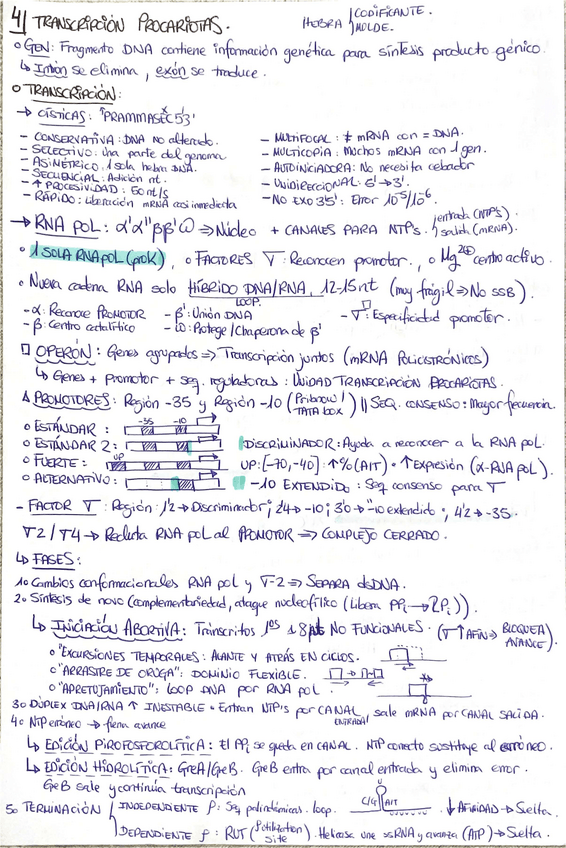 4| TRANSCRIPCIÓN PROCARIOTAS. HEBRA CODIFICANTE. MOLDE.
o GEN: Fragmento DNA contiene información genética para síntesis producto génico.
↳ Intrón se elimina, exón se traduce.
o TRANSCRIPCIÓN:
→ CÍSTICAS: "PRAMMASEC53'
- CONSERVATIVA: DNA no alterado.
- SELECTIVO: Una parte del genoma
- ASIMÉTRICO: 1 sola hebra DNA.
- SECUENCIAL: Adición nt.
- ↑ PROCESIVIDAD: 50 nt/s
- RÁPIDO: Liberación mRNA casi inmediata
- MULTIFOCAL: ≠ mRNA con = DNA.
- MULTICOPIA: Muchos mRNA con 1 gen.
- AUTOINICIADORA: No necesita cebador
- Unidireccional: 5' → 3'.
- NO EXO 3'5': Error 10⁻⁵/10⁻⁶
→ RNA POL: α'α''ββ'ω ⇒ Núcleo + CANALES PARA NTPs. entrada (NTP's) salida (mRNA).
o 1 SOLA RNA pol (proK), o FACTORES σ: Reconocen promotor. o Mg²⁺ centro activo.
o Nueva cadena RNA solo HÍBRIDO DNA/RNA, 12-15 nt (muy frágil ⇒ No SSB).
LOOP.
- α: Reconoce PROMOTOR - β': Unión DNA - σ: Especificidad promotor.
- β: Centro catalítico - ω: Protege / Chaperona de β'
□ OPERÓN: Genes agrupados ⇒ Transcripción juntos (mRNA Policistrónicos)
↳ Genes + Promotor + seq. reguladoras: UNIDAD TRANSCRIPCIÓN PROCARIOTAS.
Δ PROMOTORES: Región -35 y Región -10 (Pribnow / TATA box) || SEQ. CONSENSO: Mayor frecuencia.
-35 -10
o ESTÁNDAR:
o ESTÁNDAR 2: DISCRIMINADOR: Ayuda a reconocer a la RNA pol.
o FUERTE: UP UP: [-70, -40]: ↑% (A|T) • ↑ Expresión (α-RNA pol).
o ALTERNATIVO: -10 EXTENDIDO: Seq consenso para σ
- FACTOR σ: Región: 1'2 → Discriminador; 2'4 → -10; 3'0 → "-10 extendido"; 4'2 → -35.
σ2 / σ4 → Recluta RNA pol al PROMOTOR ⇒ COMPLEJO CERRADO.
↳ FASES:
1o Cambios conformacionales RNA pol y σ-2 ⇒ SEPARA dsDNA.
2o Síntesis de novo (complementariedad, ataque nucleofílico (libera PPi → 2Pi)).
↳ INICIACIÓN ABORTIVA: Transcritos 1ºs 18 NO FUNCIONALES. (σ ↑ AFIN → BLOQUEA AVANCE).
o "EXCURSIONES TEMPORALES: ALANTE y ATRÁS EN CICLOS.
o "ARRASTRE DE ORUGA": DOMINIO FLEXIBLE.
o "APRETUJAMIENTO": LOOP DNA por RNA pol.
3o DÚPLEX DNA/RNA ↑ INESTABLE • Entran NTP's por CANAL ENTRADA, sale mRNA por CANAL SALIDA.
4o NTP erróneo → frena avance
↳ EDICIÓN PIROFOSFOROLÍTICA: El PPi se queda en CANAL. NTP correcto sustituye al erróneo.
↳ EDICIÓN HIDROLÍTICA: GreA/GreB. GreB entra por canal entrada y elimina error.
GreB sale y continúa transcripción
5o TERMINACIÓN INDEPENDIENTE ρ: Seq palindrómicas. loop. C/G A|T ↓ AFINIDAD → Suelta.
DEPENDIENTE ρ: RUT (ρ utilization site). Helicasa une ssRNA y avanza (ATP) → Suelta.